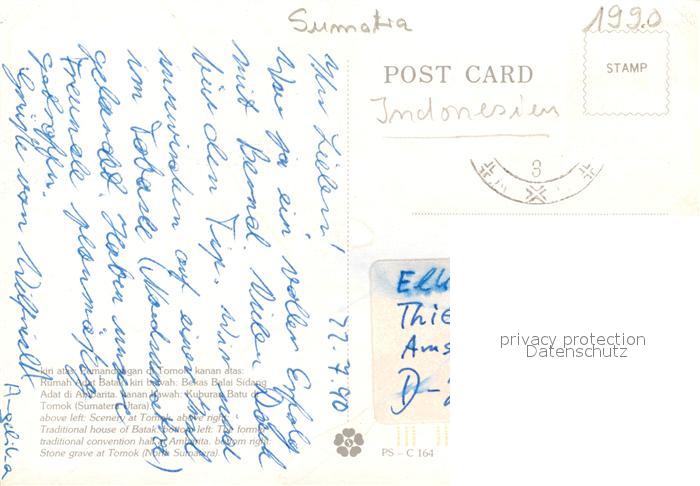 Sumatra
1990
POST CARD
STAMP
Indonesien
3
22.7.90
Ihr Lieben!
War ja ein voller Erfolg
mit Bernd. Vielen Dank
für den Tip. Wir sind
inzwischen auf einer Insel
im Tobasee (Nordsumatra)
gelandet. Haben unsere
Freunde planmäßig
getroffen.
Grüße von
Angelika
Elk
Thie
Ams
D-
privacy protection
Datenschutz
kiri atas: Pemandangan di Tomok, kanan atas:
Rumah Adat Batak, kiri bawah: Bekas Balai Sidang
Adat di Ambarita, kanan bawah: Kuburan Batu di
Tomok (Sumatera Utara).
above left: Scenery at Tomok, above right:
Traditional house of Batak, bottom left: The former
traditional convention hall at Ambarita, bottom right:
Stone grave at Tomok (North Sumatera).
PS – C 164